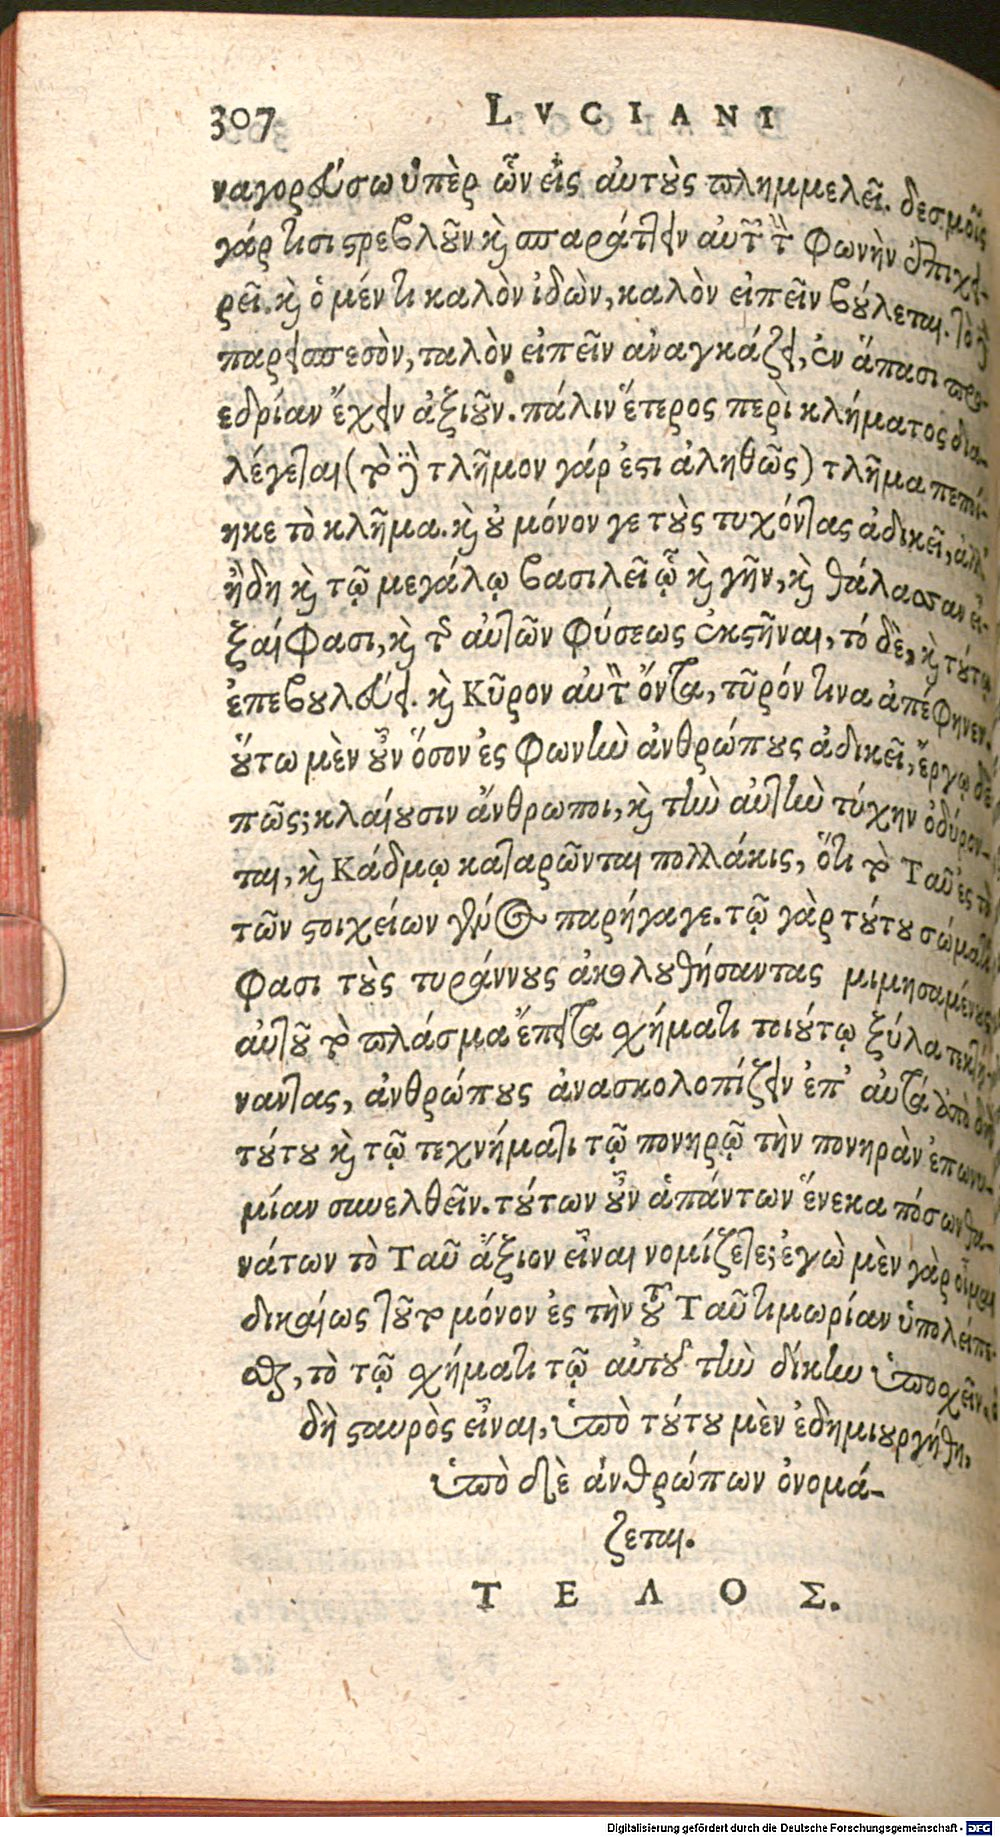 307 LVCIANI
ναγορεύσω ὑπὲρ ὧν εἰς αὐτοὺς πλημμελεῖ. δεσμοῖς
γάρ τισι στρεβλοῦν καὶ σπαράττειν αὐτῶν τὴν φωνὴν ἐπιχει-
ρεῖ. καὶ ὁ μέν τι καλὸν ἰδὼν, καλὸν εἰπεῖν βούλεται. τὸ δὲ
παρεισπεσὸν, ταλὸν εἰπεῖν ἀναγκάζει, ἐν ἅπασι προ-
εδρίαν ἔχειν ἀξιοῦν. πάλιν ἕτερος περὶ κλήματος δια-
λέγεται (τὸ δὲ τλῆμον γάρ ἐστι ἀληθῶς) τλῆμα πεποί-
ηκε τὸ κλῆμα. καὶ οὐ μόνον γε τοὺς τυχόντας ἀδικεῖ, ἀλλ'
ἤδη καὶ τῷ μεγάλῳ βασιλεῖ ᾧ καὶ γῆν, καὶ θάλασσαν εἶ-
ξαί φασι, καὶ τῆς αὐτῶν φύσεως ἐκστῆναι, τό δὲ, καὶ τούτῳ
ἐπεβουλεύει. καὶ Κῦρον αὐτὸν ὄντα, τῦρόν τινα ἀπέφηνεν.
οὕτω μὲν οὖν ὅσον ἐς φωνὴν ἀνθρώπους ἀδικεῖ, ἔργῳ δὲ
πῶς; κλαίουσιν ἄνθρωποι, καὶ τὴν αὐτὴν τύχην ὀδύρον-
ται, καὶ Κάδμῳ καταρῶνται πολλάκις, ὅτι τὸ Ταῦ ἐς τὸ
τῶν στοιχείων γένος παρήγαγε. τῷ γὰρ τούτου σώματι
φασι τοὺς τυράννους ἀκολουθήσαντας μιμησαμένους
αὐτοῦ τὸ πλάσμα ἔπειτα σχήματι τοιούτῳ ξύλα τεκτή-
ναντας, ἀνθρώπους ἀνασκολοπίζειν ἐπ' αὐτά ἀπὸ δὴ
τούτου καὶ τῷ τεχνήματι τῷ πονηρῷ τὴν πονηρὰν ἐπωνυ-
μίαν συνελθεῖν. τούτων οὖν ἁπάντων ἕνεκα πόσων θα-
νάτων τὸ Ταῦ ἄξιον εἶναι νομίζετε; ἐγὼ μὲν γὰρ οἶμαι
δικαίως τοῦτο μόνον ἐς τὴν τοῦ Ταῦ τιμωρίαν ὑπολείπε-
σθαι, τὸ τῷ σχήματι τῷ αὐτοῦ τὴν δίκην ὑποσχεῖν, ὃ
δὴ σταυρὸς εἶναι, ὑπὸ τούτου μὲν ἐδημιουργήθη,
ὑπὸ δὲ ἀνθρώπων ὀνομά-
ζεται.
ΤΕΛΟΣ.
Digitalisierung gefördert durch die Deutsche Forschungsgemeinschaft - DFG